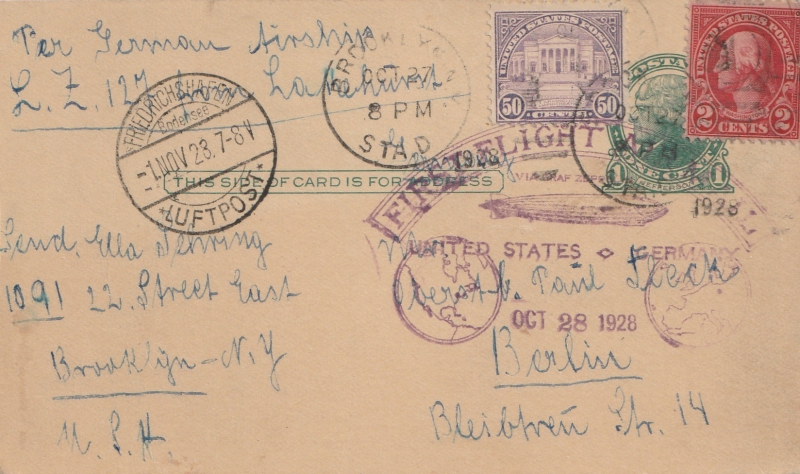 Per German Airship
L. Z. 127 from Lakehurst
Germany
FRIEDRICHSHAFEN
Bodensee
-1.NOV 28. 7-8V
LUFTPOST
BROOKLYN, N.Y.
OCT 27
8 PM
STA.D
1928
UNITED STATES POSTAGE
50 50
CENTS
UNITED STATES POSTAGE
2 2
CENTS
POSTAGE
ONE CENT
1 1
OCT 27
8 PM
1928
THIS SIDE OF CARD IS FOR ADDRESS
FIRST FLIGHT AIR MAIL
VIA GRAF ZEPPELIN
UNITED STATES ◇ GERMANY
OCT 28 1928
Send. Ella Sehring
1091 22. Street East
Brooklyn - N.Y
U. S. A.
Oberstlt. Paul Fleck
Berlin
Bleibtreu Str. 14